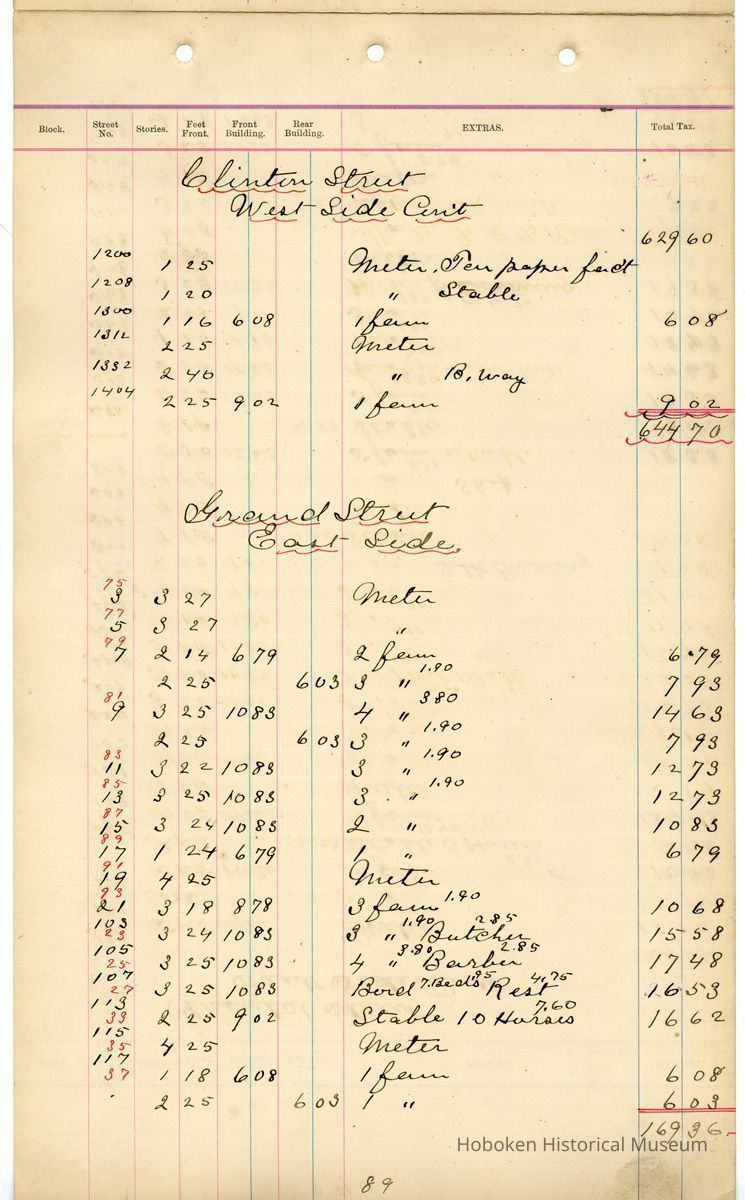 Block. Street No. Stories. Feet Front. Front Building. Rear Building. EXTRAS. Total Tax.
Clinton Street
West Side Cont
629 60
1200 1 25 Meter, paper fact
1208 1 20 " Stable
1300 1 16 6 08 1 fam 6 08
1312 2 25 Meter
1332 2 40 " B. way
1404 2 25 9 02 1 fam 9 02
644 70
Grand Street
East Side
75 3 3 27 Meter
77 5 3 27 "
79 7 2 14 6 79 2 fam 6.79
2 25 6 03 3 " 1.90 7 93
81 9 3 25 10 83 4 " 3 80 14 63
2 25 6 03 3 " 1.90 7 93
83 11 3 22 10 83 3 " 1.90 12 73
85 13 3 25 10 83 3 " 1.90 12 73
87 15 3 24 10 83 2 " 10 83
89 17 1 24 6 79 1 " 6 79
91 19 4 25 Meter
93 21 3 18 8 78 3 fam 1.90 10 68
103 23 3 24 10 83 3 " 1.90 Butcher 2.85 15 58
105 25 3 25 10 83 4 " 3.80 Barber 2.85 17 48
107 27 3 25 10 83 Bord 7 Beds .95 Rest 4.75 16 53
113 33 2 25 9 02 Stable 10 Horses 7.60 16 62
115 35 4 25 Meter
117 37 1 18 6 08 1 fam 6 08
2 25 6 03 1 " 6 03
169 36
Hoboken Historical Museum
89